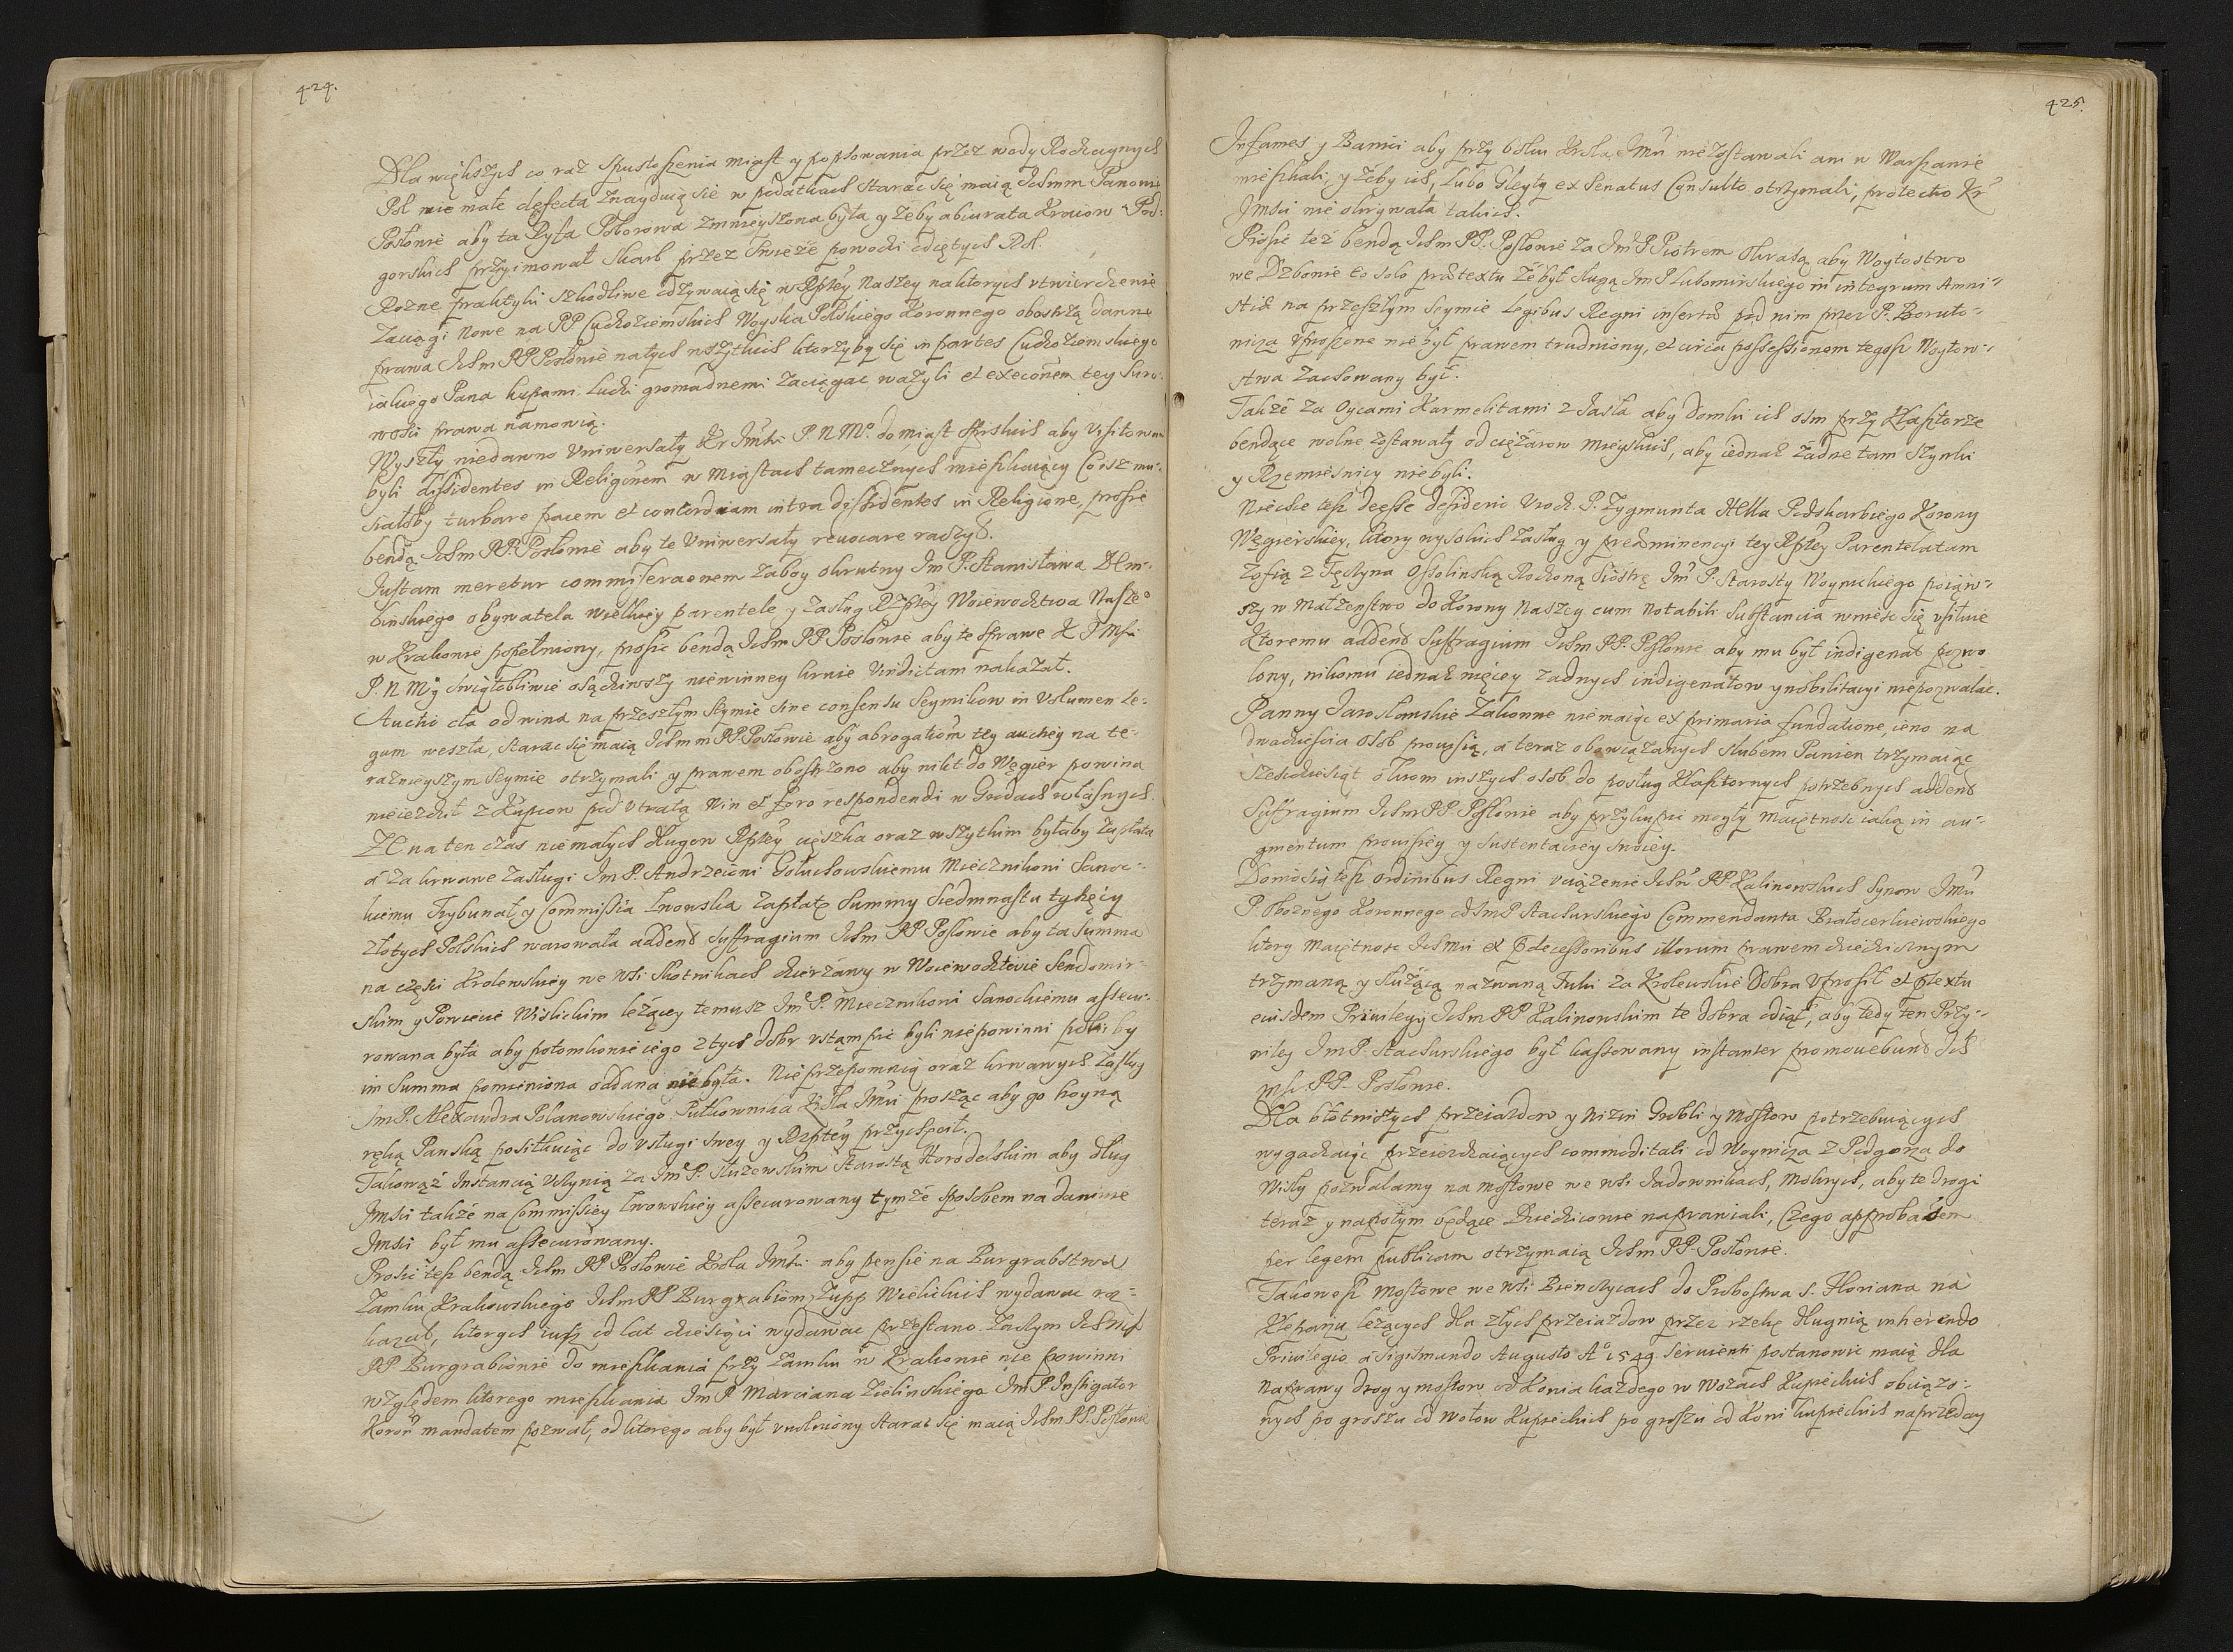 424.
Dla większych co raz spustoszenia miast y popsowania przez wody Rodzaynych
Pol nie małe defecta znayduią się w podatkach starac się maią Ichmm Panowie
Posłowie aby ta Ryfa Poborowa zmnieyszona była y żeby abiurata Kraiow Pod-
gorskich przyimował Skarb przez swieże powodzi odiętych Rol.
Rozne praktyki szkodliwe odzywaią się w Rptey Naszey na ktorych utwierdzenie
Zaciągi nowe na PP Cudzoziemskich Woyska Polskiego Koronnego obostrzą dawne
prawa Ichm PP Posłowie na tych wszytkich ktorzyby się in partes Cudzoziemskiego
iakiego Pana kupami ludzi gromadnemi zaciągac ważyli et execōnem tey suro-
wosci prawa namowią.
Wyszły niedawno Uniwersały Kr Jmśi P N Mᵒ. do miast Spiskich aby
byli dissidentes in Religōnem w Miastach tamecznych mieszkaiący
siałoby turbare pacem et concordiam intra dissidentes in Religione, prosić
bendą Ichm PP. Posłowie aby te Uniwersały revocare raczył.
Justam meretur commiseraōnem Zaboy okrutny Jm P. Stanisława Dem-
binskiego obywatela wielkiey parentele y zasług Rzptey Woiewodztwa Naszᵒ
w Krakowie popełniony, prosic bendą Ichm PP Posłowie aby te sprawe K J Msci
P. N Mły swiątobliwie osądziwszy niewinney krwie Vindictam nakazał.
Aucho cła od wina na przeszłym Seymie sine consensu Seymikow in Volumen Le-
gum weszła, starac się maią Ichmm PP. Posłowie aby abrogatiōm tey auchey na te-
raznieyszym Seymie otrzymali y prawem obostrzono aby nikt do Węgier po wina
nieiezdzil z Kupcow pod utratą Win et foro respondendi w Grodach własnych.
Ze na ten czas nie małych długow Rptey cięszka oraz wszytkim byłaby zapłata
a za krwawe zasługi Jm P. Andrzeiowi Gołuchowskiemu Miecznikowi Sanoc-
kiemu Trybunał y Commissia Lwowska zapłatę Summy Siedmnastu tysięcy
złotych Polskich warowała addent suffragium Ichm PP Posłowie aby ta summa
na części Krolewskiey we Wsi Skotnikach dzierżawy w Woiewodztwie Sendomir-
skim y Powiecie Wislickim leżącey temusz Jm P. Miecznikowi Sanockiemu assecu-
rowana była aby potomkowie iego z tych dobr ustąmpic byli niepowinni pokiby
im Summa pomieniona oddana nie była. Nie przepomnią oraz krwawych zasług
Jm P. Alexandra Polanowskiego Pułkownika Krola Jmći prosząc aby go hoyną
ręką Panską posiłkuiąc do usługi swey y Rzptey przysposił.
Takowąż Instancią uczynią za Jm P. Służewskim Starostą Horodelskim aby dług
Jmści takze na Commissiey Lwowskiey assecurowany tymże sposobem na dawnie
Jmsci był mu assecurowany.
Prosic tesz bendą Ichm PP Posłowie Krola Jmści aby pensie na Burgrabstwa
Zamku Krakowskiego Ichm PP Burgrabiom z Zupp Wielickich wydawac roz-
kazał, ktorych iusz od lat dziesiąci wydawac przestano zaczym Ichmć
PP Burgrabiowie do mieszkania przy Zamku w Krakowie nie powinni
względem ktorego mieszkania Jm P. Marciana Zielinskiego Jm P. Instigator
Koroñ mandatem pozwał, od ktorego aby był uwolniony starac się maią Ichm PP. Posłowie
425.
Infames y Banici aby przy boku Krola Jmći nie zostawali ani w Warszawie
mieszkali, y żeby ich, lubo Gleyty ex Senatus Consulto otrzymali, protectio Kr
Jmści nie okrywała takich.
Prosic też bendą Ichm PP. Posłowie za Jm P Piotrem Okrasą aby Woytostwo
we Dzbowie eo solo praetextu że był sługą Jm P Lubomirskiego in integrum Amni-
stiae na przeszłym Seymie Legibus Regni inserta pod nim przez P. Boruto-
wicza uproszone nie był prawem trudniony, et circa possessionem tegosz Woytow-
stwa zachowany był.
Także za Oycami Karmelitami z Jasła aby Domki ich osm przy Klasztorze
bendące wolne zostawały od ciężarow mieyskich, aby iednak żadne tam Szynki
y Rzemiesnicy niebyli.
Niechce tesz deesse desiderio Urodz. P. Zygmunta Podskarbiego Korony
Węgierskiey, ktory wysokich zasług y praeeminencyi tey Rptey Parentelatam
Zofią z Tęczyna Ossolinską Rodzoną Siostrę Jm P. Starosty Woynickiego poiąw-
szy w małżenstwo do Korony Naszey cum notabili Substancia wniesc się usiłuie
Ktoremu addent suffragium Ichm PP. Posłowie aby mu był indigenat pozwo
lony, nikomu iednak więcey żadnych indigenatow y nobilitacyi niepozwalac.
Panny Jarosławskie Zakonne nie maiąc ex primaria fundatione, ieno na
dwadziescia osob prowisią, a teraz obowiązanych slubem Panien trzymaiąc
szescdziesiąt okrom inszych osob do posług Klasztornych potrzebnych addent
Suffragium Ichm PP Posłowie aby przykupic mogły maiętnosc iaką in au-
gmentum prowisiey y sustentaciey swoiey.
Donioszą tesz ordinibus Regni uciążenie Ichm PP Kalinowskich Synow Jmći
P. Oboznego Koronnego od Jm P. Stachurskiego Commendanta Białocerkiewskiego
ktory maiętnosc Ichmći et Pdecessoribus illorum prawem dziedzicznym
trzymaną y służącą nazwaną Fuki za Krolewskie Dobra uprosił et ptextu
eiusdem Privilegij Ichm PP Kalinowskim te dobra odiął, aby tedy ten Przy-
wiley Jm P. Stachurskiego był kassowany instanter promovebunt Ich
mći. PP. Posłowie.
Dla błotnistych przeiazdow y nizin Grobli y Mostow potrzebuiących
wygadzaiąc przeieżdzaiących commoditati od Woynicza z Podgorza do
Wisły pozwalamy na mostowe we wsi Jadownikach, Mokrych, aby te drogi
teraz y napotym będące Dziedzicowie naprawiali, Czego approbaōem
per legem publicam otrzymaią Ichm PP. Posłowie.
Takowesz mostowe we Wsi Bienczycach do Probostwa S. Floriana na
Kleparzu leżących dla złych przeiazdow przez rzekę Długnią inherendo
Privilegio a Sigismundo Augusto Aᵒ 1549 servienti postanowic maią dla
naprawy drog y mostow od Konia każdego w Wozach Kupieckich obciążo-
nych po groszu od wołow Kupieckich po groszu od Koni kupieckich naprzeday